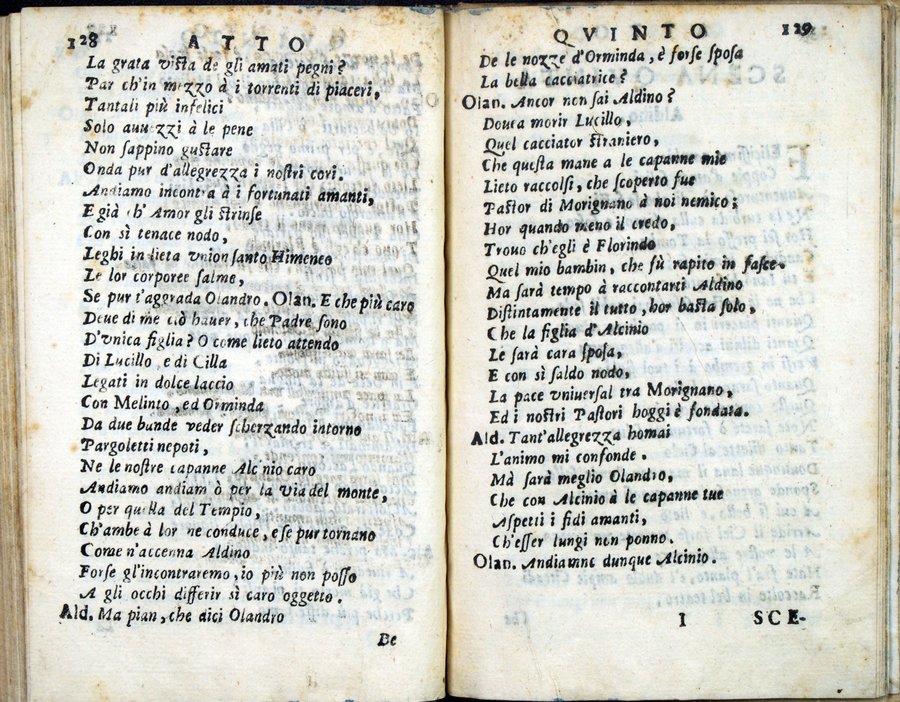 128 ATTO
La grata viſta de gli amati pegni?
Par ch'in mezzo à i torrenti di piaceri,
Tantali più infelici
Solo auuezzi à le pene
Non ſappino guſtare
Onda pur d'allegrezza i noſtri cori.
Andiamo incontra à i fortunati amanti,
E già ch'Amor gli ſtrinſe
Con sì tenace nodo,
Leghi in lieta vnion ſanto Himeneo
Le lor corporee ſalme,
Se pur t'aggrada Olandro. Olan. E che più caro
Deue di me ciò hauer, che Padre ſono
D'vnica figlia? O come lieto attendo
Di Lucillo, e di Cilla
Legati in dolce laccio
Con Melinto, ed Orminda
Da due bande veder ſcherzando intorno
Pargoletti nepoti,
Ne le noſtre capanne Alc nio caro
Andiamo andiam ò per la via del monte,
O per quella del Tempio,
Ch'ambe à lor ne conduce, e ſe pur tornano
Come n'accenna Aldino
Forſe gl'incontraremo, io più non poſſo
A gli occhi differir sì caro oggetto.
Ald. Ma pian, che dici Olandro
De
QVINTO 129
De le nozze d'Orminda, è forſe ſpoſa
La bella cacciatrice?
Olan. Ancor non ſai Aldino?
Douea morir Lucillo,
Quel cacciator ſtraniero,
Che queſta mane a le capanne mie
Lieto raccolſi, che ſcoperto fue
Paſtor di Morignano à noi nemico;
Hor quando meno il credo,
Trouo ch'egli è Florindo
Quel mio bambin, che fù rapito in faſce.
Ma ſarà tempo à raccontarti Aldino
Diſtintamente il tutto, hor baſta ſolo,
Che la figlia d'Alcinio
Le ſarà cara ſpoſa,
E con sì ſaldo nodo,
La pace vniuerſal tra Morignano,
Ed i noſtri Paſtori hoggi è fondata.
Ald. Tant'allegrezza homai
L'animo mi confonde.
Mà ſarà meglio Olandro,
Che con Alcinio à le capanne tue
Aſpetti i fidi amanti,
Ch'eſſer lungi non ponno.
Olan. Andianne dunque Alcinio.
I SCE-